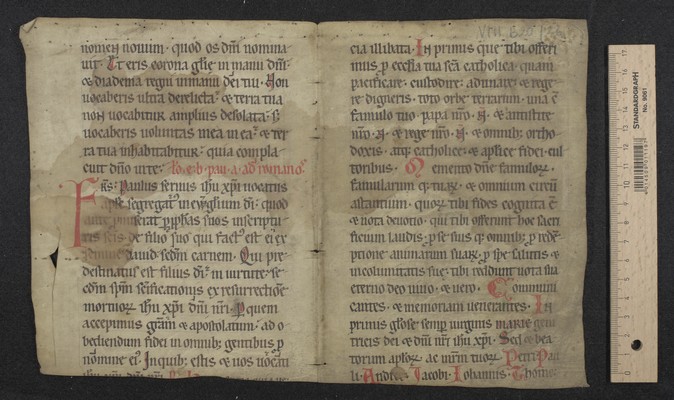 nomen nouum · quod os dñi nomina
uit · Et eris corona glíe in manu dñi
& diadema regni in manu dei tui · Non
uocaberis ultra derelicta · & terra tua
non uocabitur amplius desolata · s;
uocaberis uoluntas mea in ea · & ter
ra tua inhabitabitur · quia compla
cuit dño in te ·
Paulus seruus ihu xpi uocatus
segregat' in eu̅gl̅ium di · quod
ante p̅miserat p̅ p̅phas suos in scriptu
ris scis · de filio suo qui fact' est ei ex
semine dauid scd̅m carnem · Qui pre
destinatus est filius dī in uirtute se
cdm spm sc̅ificationis ex resurrectione
mortuoꝝ ihu xpi dni nri · P quem
accepimus gram & apostolatum · ad o
bediendum fidei in omnib; gentibus p
nomine ei' In quib; estis & uos uocati
ihu xpi dni nri
Vni
cia illibata · In primis que tibi offeri
mus p ecctia tua scā catholica · quam
pacificare · custodire · adunare & rege
re digneris · toto orbe terrarum · una c̅
famulo tuo papa nr̅o · N̅ · & antistite
nr̅o · N̅ · & rege nr̅o · N̅ · & omnib; ortho
doxis · atq; catholice · & aplice fidei cul
toribus · Memento dñe famuloꝝ
famularum q; tuaꝝ · & omnium circu̅
astantium · quoꝝ tibi fides cognita ē
& nota deuotio · qui tibi offerunt hoc sacri
ficium laudis · p se suis q; omnib; p rede̅
ptione animarum suaꝝ · p spe salutis &
incolumitatis sue · tibi reddunt uota sua
eterno deo uiuo · & uero · Communi
cantes · & memoriam uenerantes · In
primis gl̅ose semp uirginis marie geni
tricis dei & dn̅i nr̅i ihu xpi · Sed & bea
torum aploꝝ ac mr̅m tuoꝝ · Petri Pau
li · Andree · Iacobi · Iohannis · Thome ·
STANDARDGRAPH
No. 9061
0 1 2 3 4 5 6 7 8 9 10 11 12 13 14 15 16 17